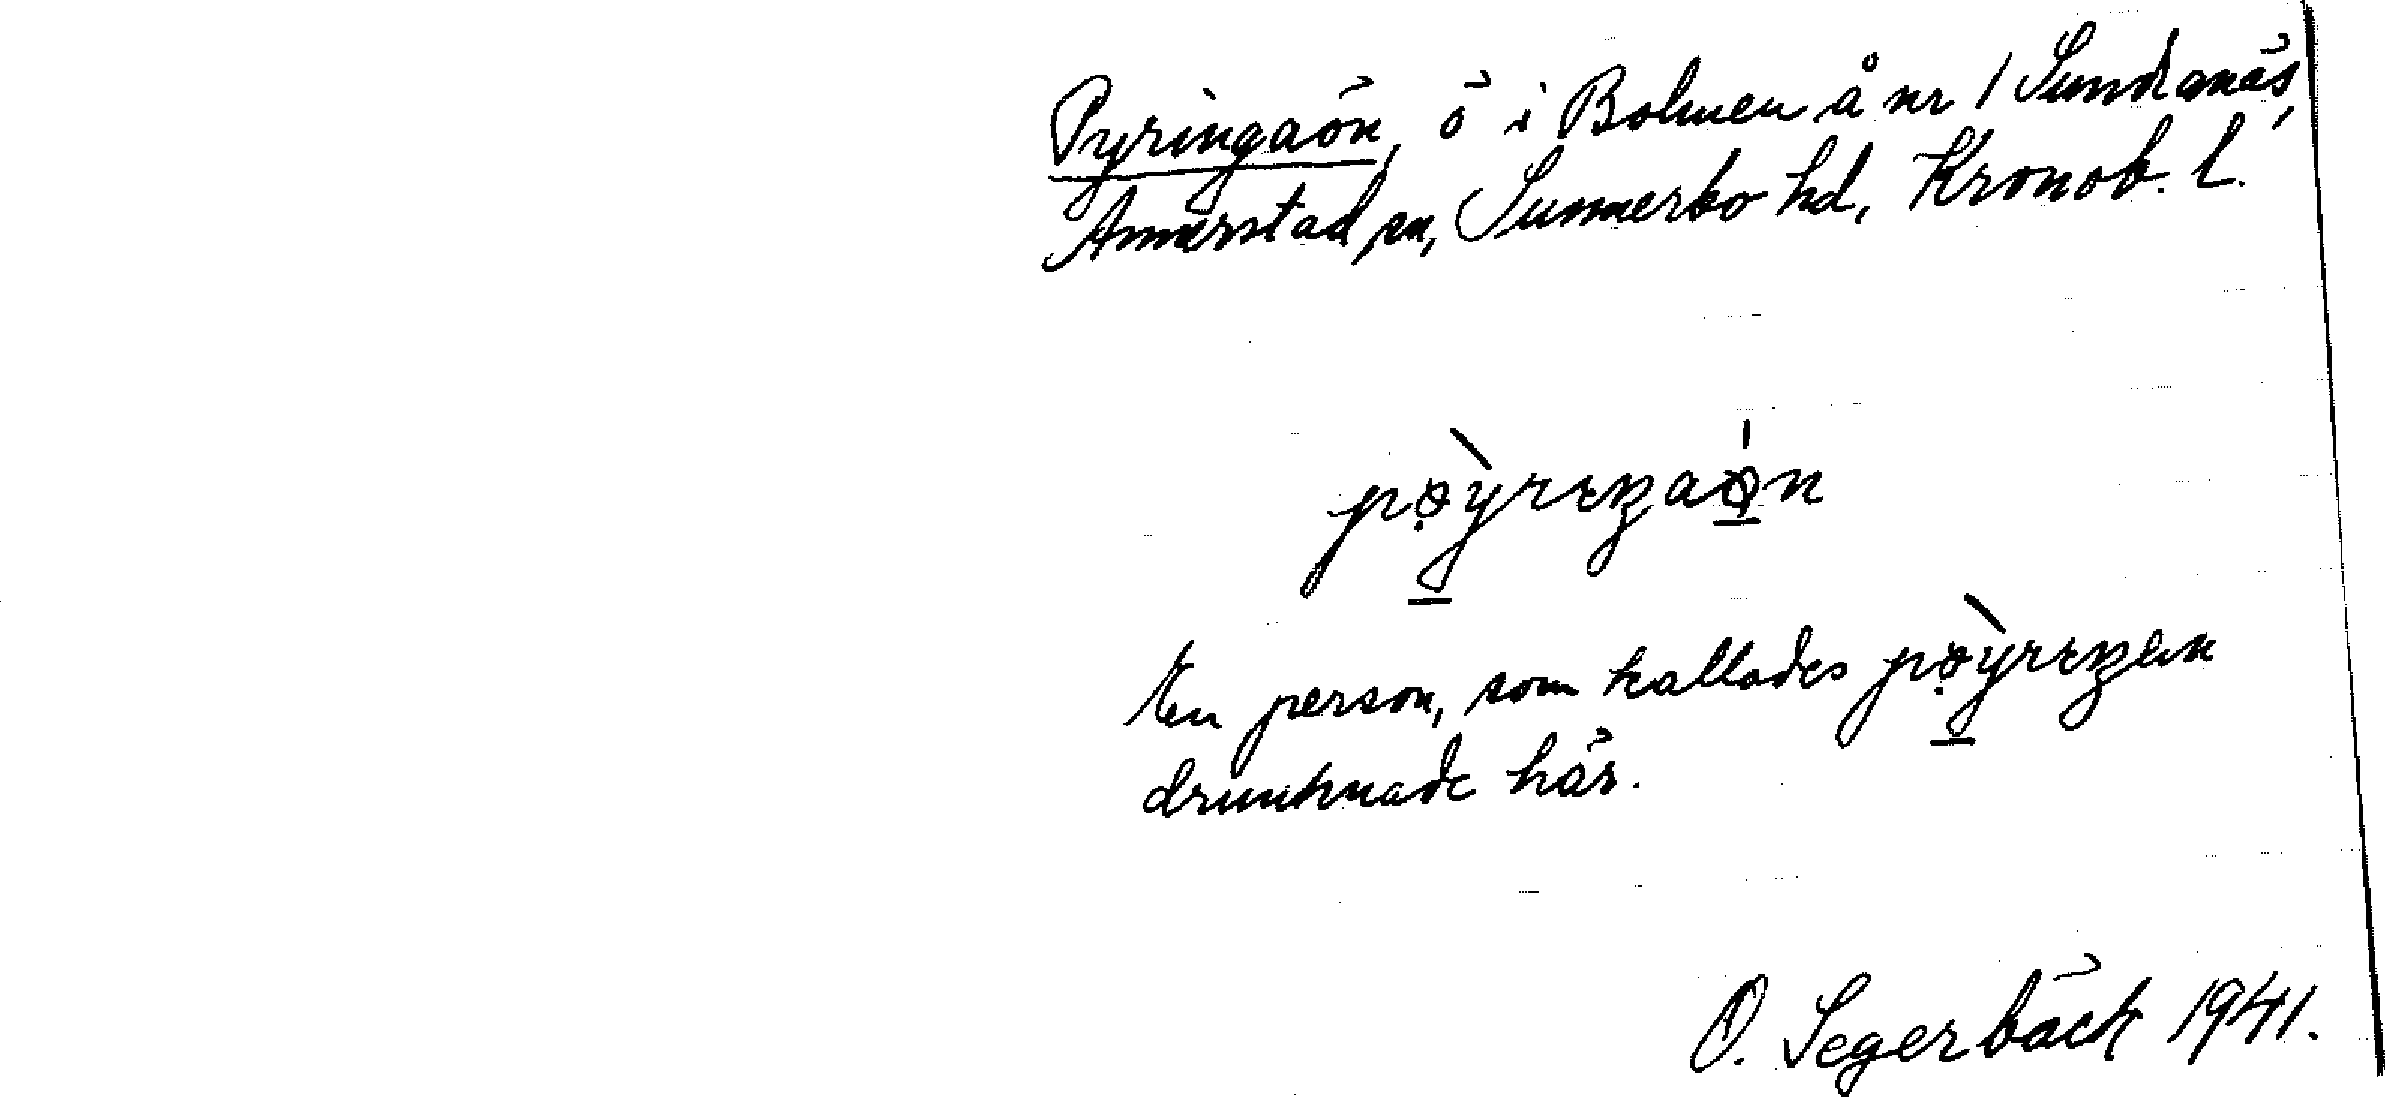 Pyringaön, ö i Bolmen å nr 1 Sundranäs,
Annerstad sn, Sunnerbo hd, Kronob. l.
pø̀yrɪŋaøn
En person, som kallades pø̀yrɪŋen
drunknade här.
O. Segerbäck 1941.